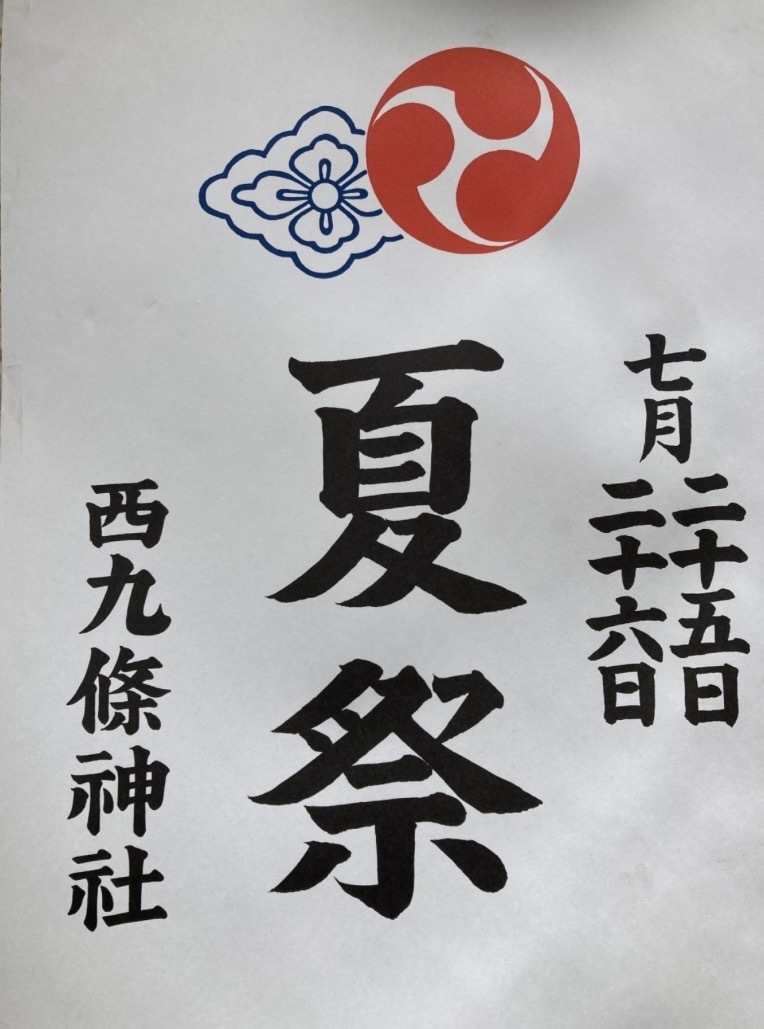 七月
二十五日
二十六日
夏祭
西九條神社